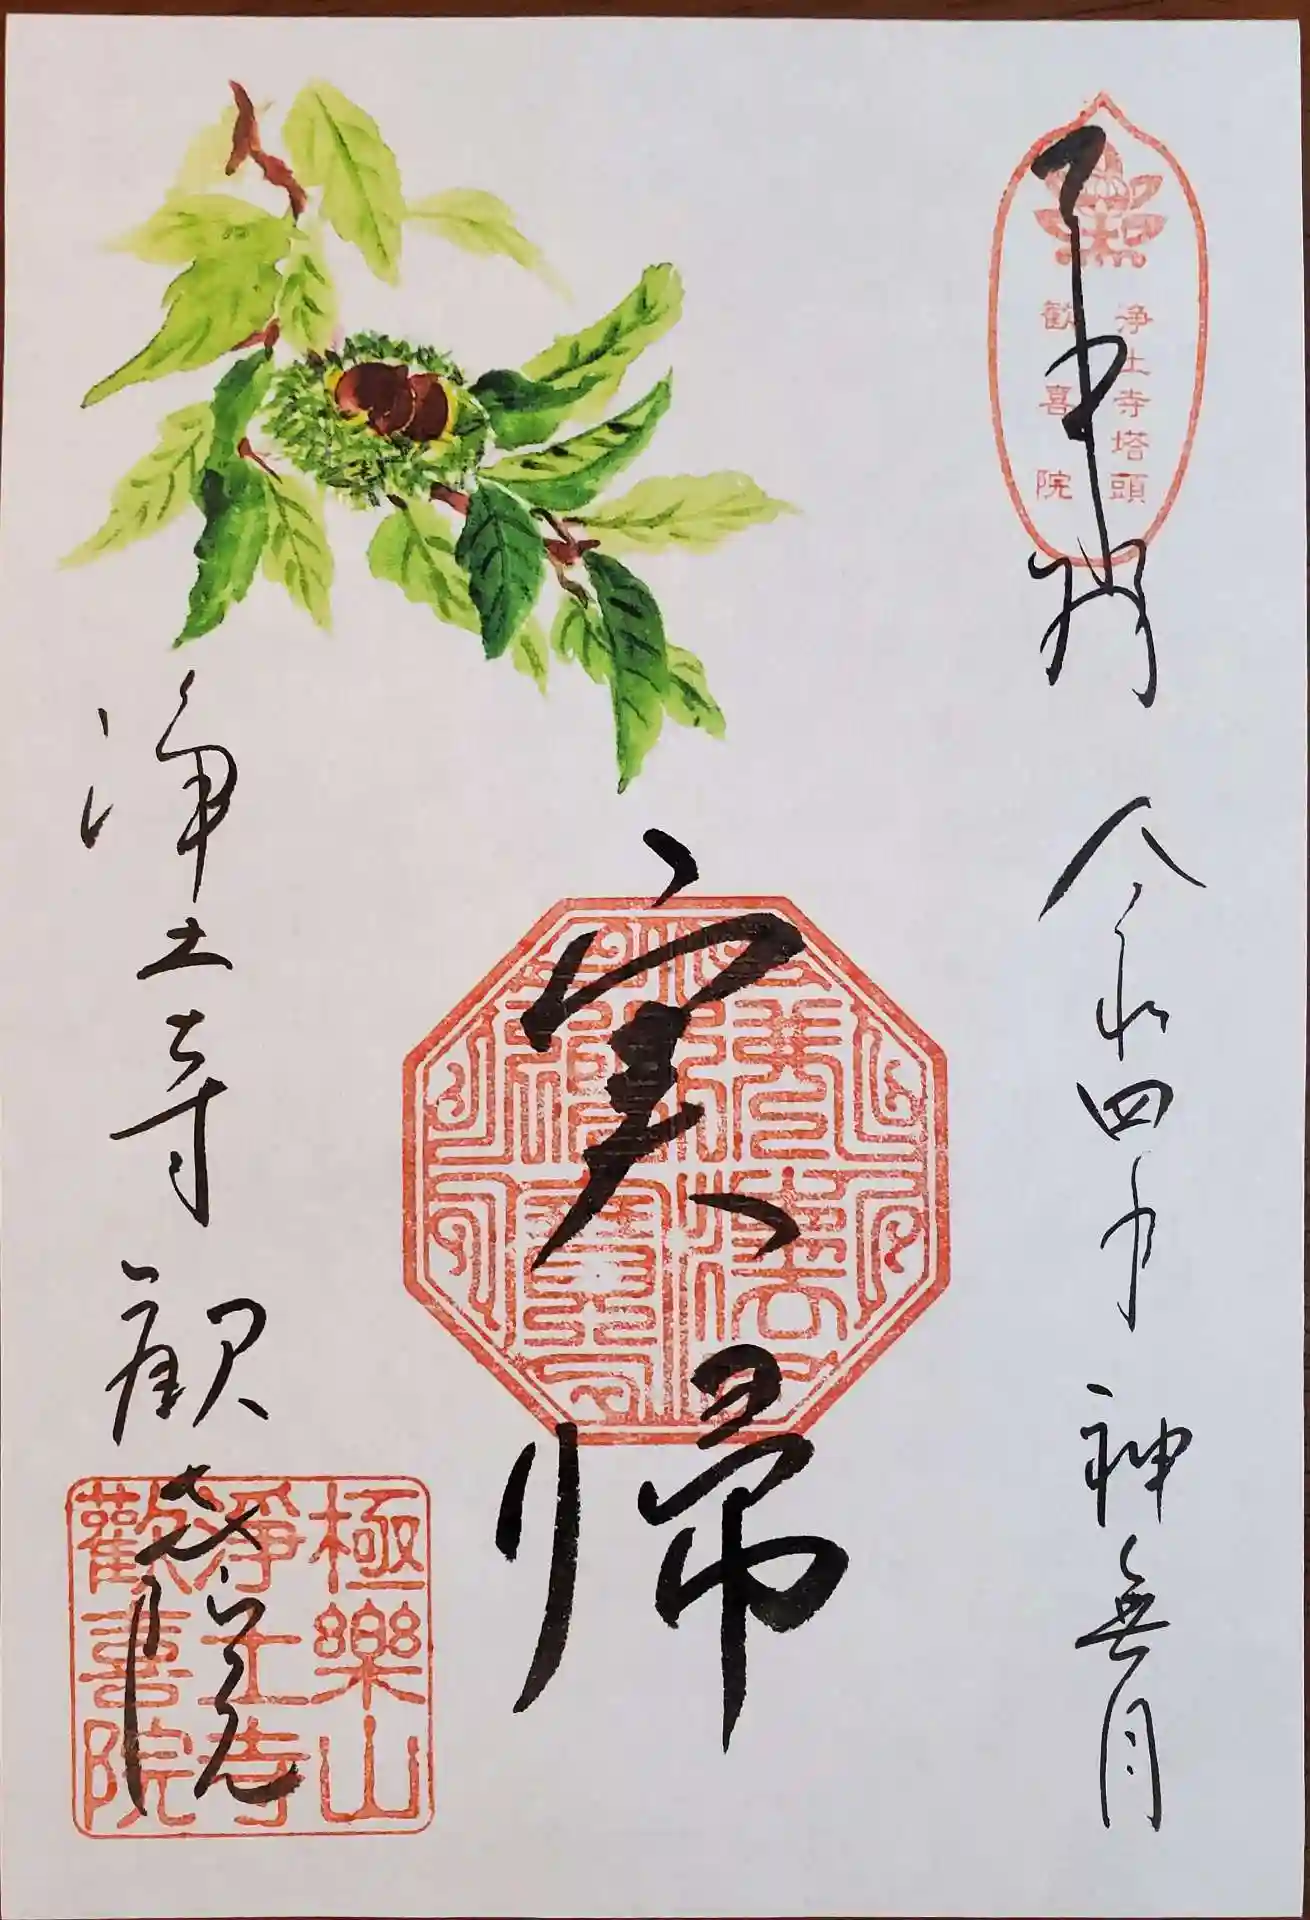 奉拝 令和四年 神無月
浄土寺塔頭
歓喜院
実帰
浄土寺 歓喜院
極樂山
淨土寺
歡喜院